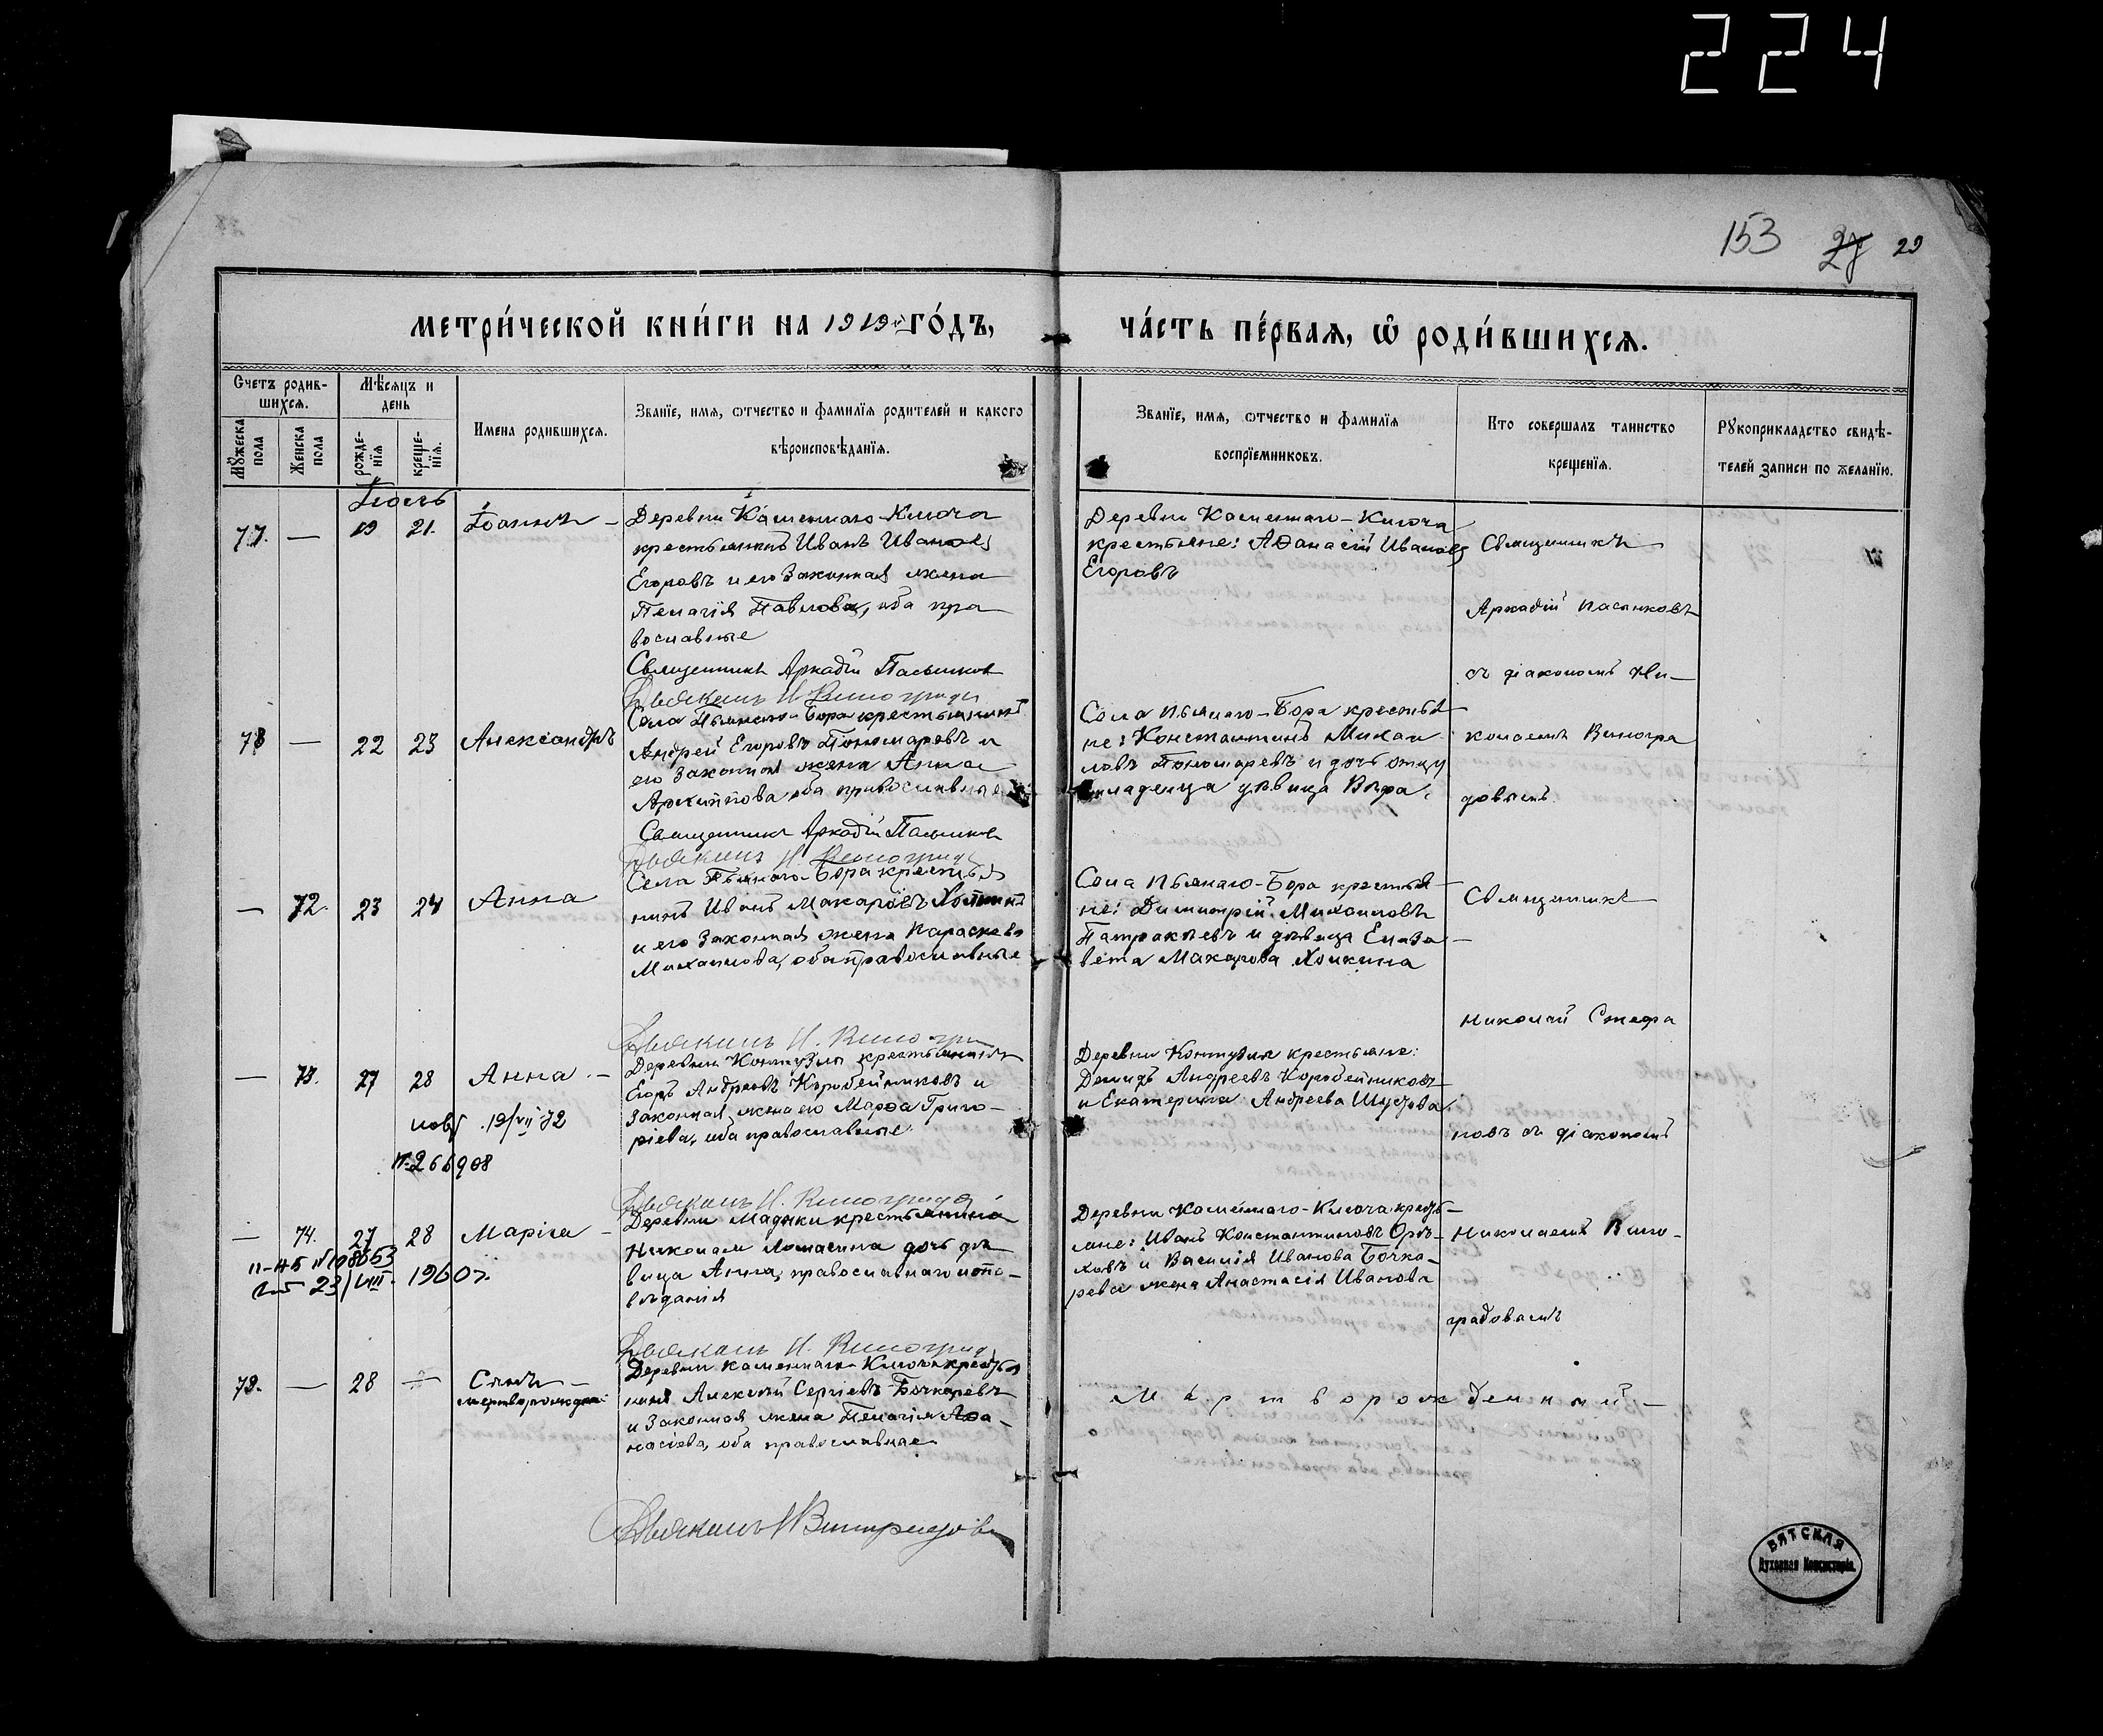 224
153 27 29
МЕТРИ́ЧЕСКОЙ КНИ́ГИ НА 1919й ГО́ДЪ,
ЧА́СТЬ ПЕ́РВАЯ, Ѡ РОДИ́ВШИХСЯ.
Счетъ родив-
шихся.
Мѣсяцъ и
день
Мꙋжеска
пола
Женска
пола
рожде-
нїя
креще-
нїя.
Имена родившихся.
Званїе, имя, ѡтчество и фамилїя родителей и какого
вѣроисповѣданїя.
Званїе, имя, ѡтчество и фамилїя
воспрїемниковъ.
Кто совершалъ таинство
крещенїя.
Рꙋкоприкладство свидѣ-
телей записи по желанїю.
77. — 19 21. Іоаннъ —
Деревни Каменнаго-Ключа
крестьянинъ Иванъ Ивановъ
Егоровъ и его законная жена
Пелагія Павлова, оба пра
вославные
Священникъ Аркадій Пасынковъ
Дьяконъ Н. Виноградо
Деревни Каменнаго-Ключа
крестьяне: Аѳанасій Ивановъ
Егоровъ
Священникъ
Аркадій Пасынковъ
съ діакономъ Ни-
колаемъ Виногра
довымъ.
78 — 22 23 Александръ
Села Пьянаго-Бора крестьянинъ
Андрей Егоровъ Пономаревъ и
его законная жена Анна
Архиппова, оба православные
Священникъ Аркадій Пасынков
Дьяконъ Н. Виноградо
Села Пьянаго-Бора крестья-
не: Константинъ Михаи
ловъ Пономаревъ и дочь отца
младенца дѣвица Вѣра.
— 72. 23 24 Анна
Села Пьянаго-Бора крестья
нинъ Иванъ Макаровъ
и его законная жена Параскева
Михаилова, оба православные
Дьяконъ Н. Виногра
Села Пьянаго-Бора крестья-
не: Димитрій Михаиловъ
Патракѣевъ и дѣвица Елиза-
вета Макарова Холкина
Священникъ
Николай Стефа
новъ съ діакономъ
Николаемъ Вино-
градовымъ
— 73. 27 28 Анна —
19/VII 72
№ 266908
Деревни Контузлы крестьянинъ
Егоръ Андреевъ Коробейниковъ и
законная жена его Марѳа Григо-
ріева, оба православные.
Дьяконъ Н. Виноградо
Деревни Контузлы крестьяне:
Демидъ Андреевъ Коробейниковъ
и Екатерина Андреева Шустова.
— 74. 27 28 Марія —
II-НБ №108653
23/VIII 1960г.
Деревни крестьянина
Николая дочь дѣ-
вица Анна, православнаго испо-
вѣданія
Дьяконъ Н. Виноград
Деревни Каменнаго-Ключа кресть-
яне: Иванъ Константиновъ Орѣ-
ховъ и Василія Иванова Бочка-
рева жена Анастасія Иванова
79. — 28 — Сынъ —
мертворожден.
Деревни Каменнаго-Ключа крестья
нинъ Алексѣй Сергіевъ Бочкаревъ
и законная жена Пелагія Аѳа-
насіева, оба православные
Мертворожденный —
Дьяконъ Н Виноградовъ
ВЯТСКАЯ
Духовная Консисторія.